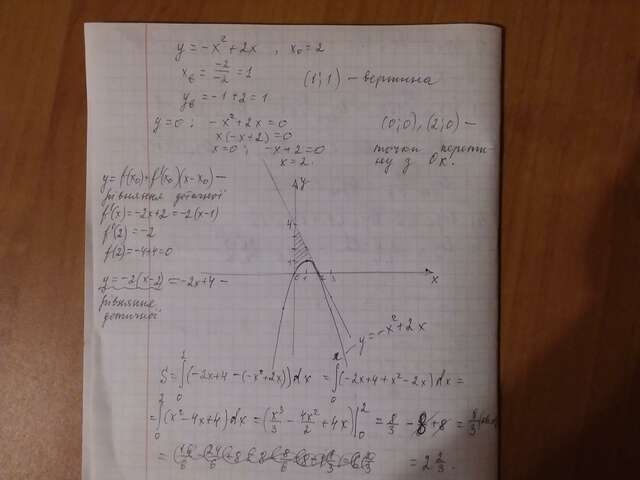 y = -x² + 2x , x₀ = 2
xв = -2/-2 = 1
(1; 1) – вершина
yв = -1 + 2 = 1
y = 0 ; -x² + 2x = 0
x(-x+2) = 0
x = 0 ; -x + 2 = 0
x = 2.
(0; 0), (2; 0) –
точки перети-
ну з Ox.
y = f(x₀) + f'(x₀)(x - x₀) –
рівняння дотичної
f'(x) = -2x + 2 = -2(x-1)
f'(2) = -2
f(2) = -4 + 4 = 0
y = -2(x-2) = -2x + 4 –
рівняння
дотичної
y
4
1
0 1 2
x
y = -x² + 2x
S = ∫₀² (-2x + 4 - (-x² + 2x)) dx = ∫₀² (-2x + 4 + x² - 2x) dx =
= ∫₀² (x² - 4x + 4) dx = (x³/3 - 4x²/2 + 4x) |₀² = 8/3 - 8 + 8 = 8/3
= 2 2/3 .